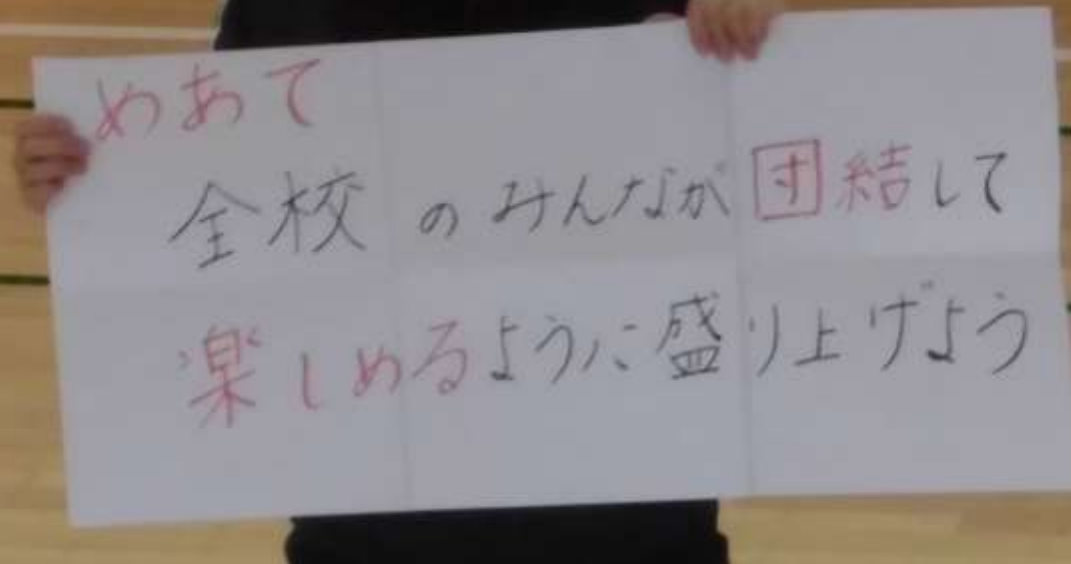 めあて
全校のみんなが団結して
楽しめるように盛り上げよう